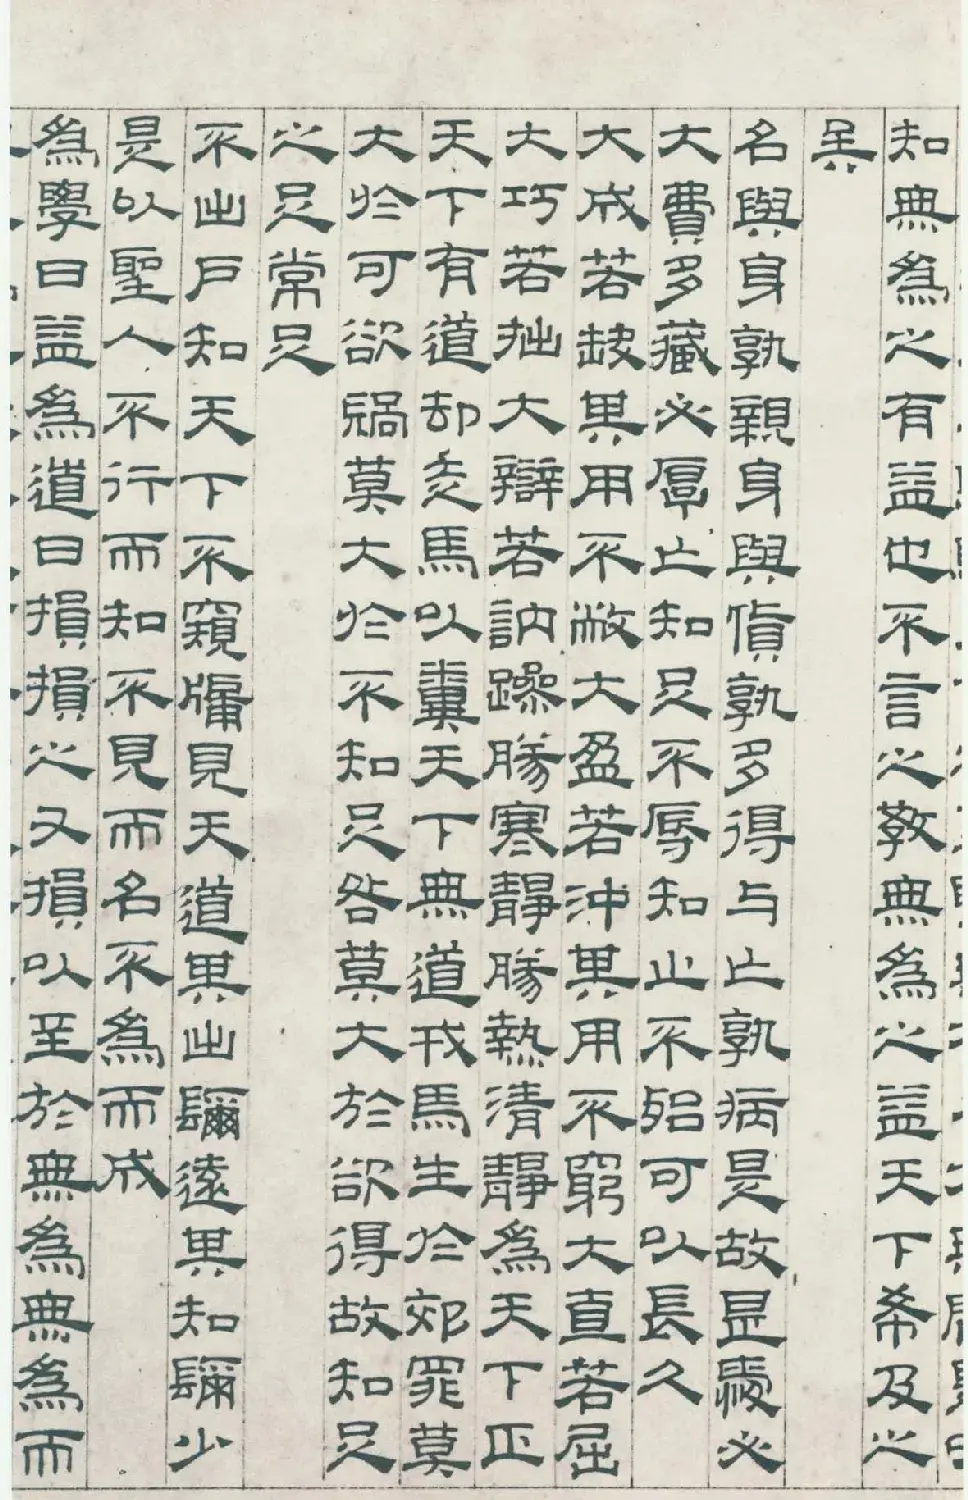 知無為之有益也不言之教無為之益天下希及之
矣
名與身孰親身與貨孰多得与亡孰病是故甚愛必
大費多藏必厚亡知足不辱知止不殆可以長久
大成若缺其用不敝大盈若沖其用不窮大直若屈
大巧若拙大辯若訥躁勝寒靜勝熱清靜為天下正
天下有道却走馬以糞天下無道戎馬生於郊罪莫
大於可欲禍莫大於不知足咎莫大於欲得故知足
之足常足
不出戶知天下不窺牖見天道其出彌遠其知彌少
是以聖人不行而知不見而名不為而成
為學日益為道日損損之又損以至於無為無為而